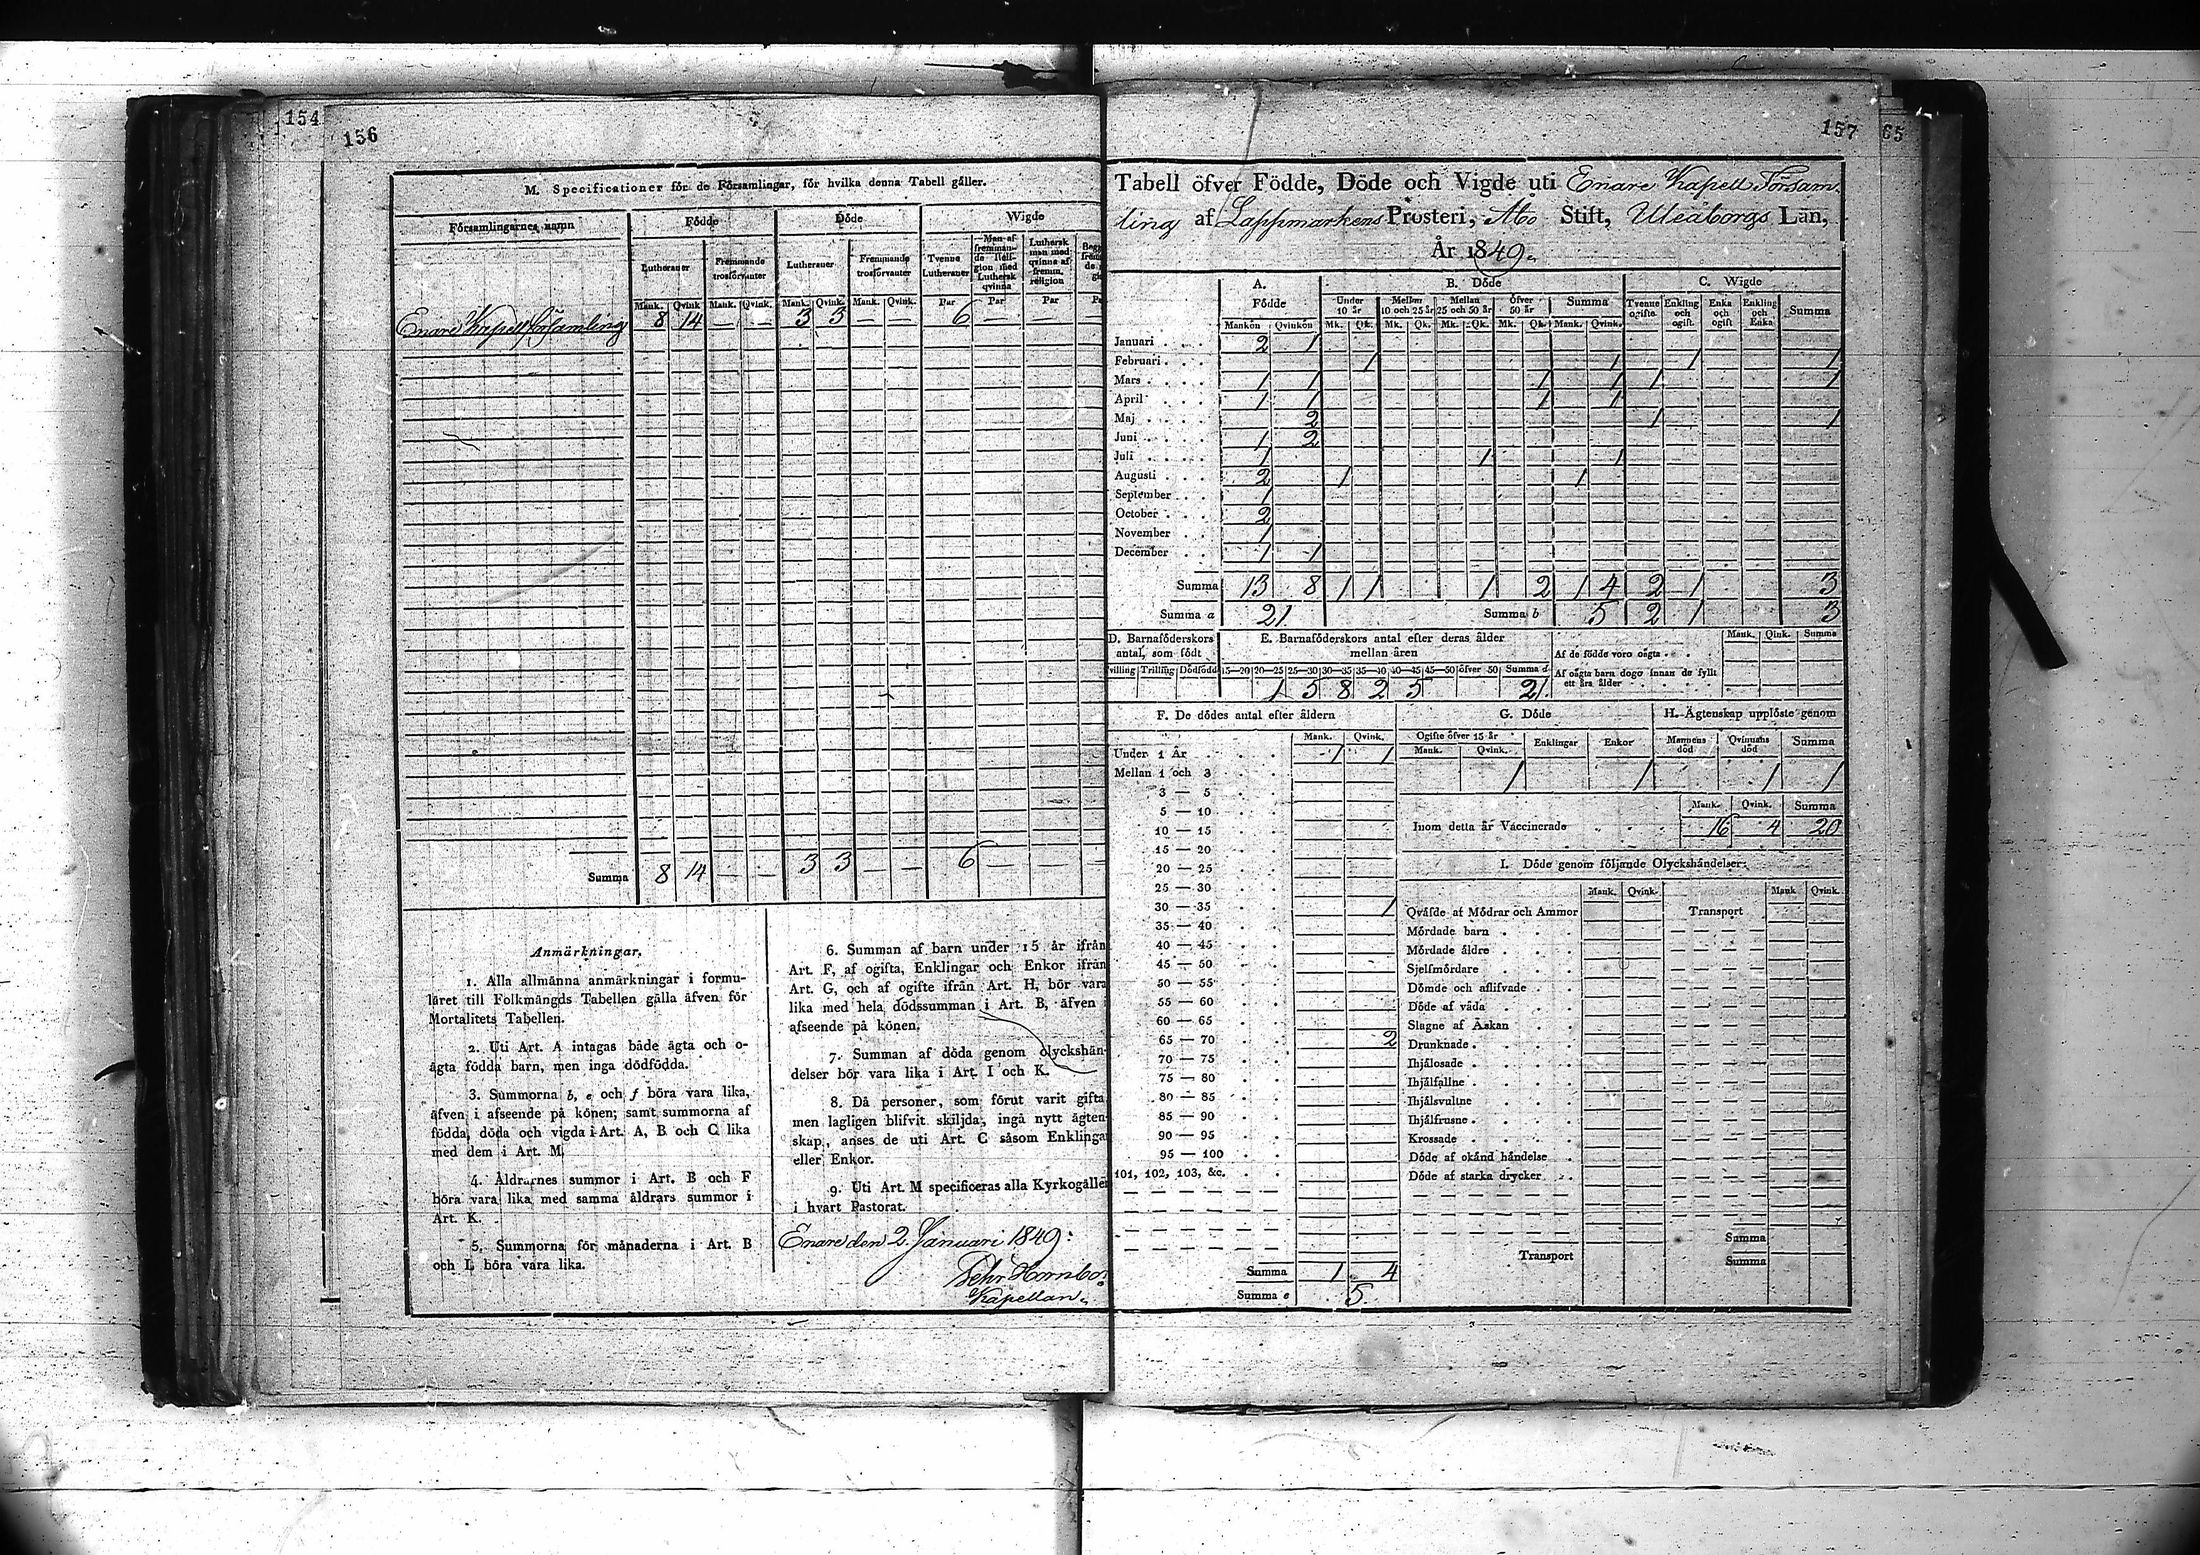 154
156
M. Specificationer för de Församlingar, för hvilka denna Tabell gäller.
Församlingarnes namn
Födde
Döde
Wigde
Lutheraner
Fremmande trosförvanter
Lutheraner
Fremmande trosförvanter
Tvenne Lutheraner
Man af fremmande Religion med Luthersk qvinna
Luthersk man med qvinna af fremm. religion
Mank. Qvink. Mank. Qvink. Mank. Qvink. Mank. Qvink. Par Par Par
Enare Kapell församling 8 14 — — 3 3 — — 6 — — —
Summa 8 14 — — 3 3 — — 6 — — —
Anmärkningar.
1. Alla allmänna anmärkningar i formu-
läret till Folkmängds Tabellen gälla äfven för
Mortalitets Tabellen.
2. Uti Art. A intagas både ägta och o-
ägta födda barn, men inga dödfödda.
3. Summorna b, e och f böra vara lika,
äfven i afseende på könen; samt summorna af
födda, döda och vigda i Art. A, B och C lika
med dem i Art. M.
4. Åldrarnes summor i Art. B och F
böra vara lika med samma åldrars summor i
Art. K.
5. Summorna för månaderna i Art. B
och L böra vara lika.
6. Summan af barn under 15 år ifrån
Art. F, af ogifta, Enklingar och Enkor ifrån
Art. G, och af ogifte ifrån Art. H, bör vara
lika med hela dödssumman i Art. B, äfven i
afseende på könen.
7. Summan af döda genom olyckshän-
delser bör vara lika i Art. I och K.
8. Då personer, som förut varit gifta
men lagligen blifvit skiljda, ingå nytt ägten-
skap, anses de uti Art. C såsom Enklingar
eller Enkor.
9. Uti Art. M specificeras alla Kyrkogäller
i hvart Pastorat.
Enare den 2 Januari 1849.
Pehr Hornbor
Kapellan.
157
65
Tabell öfver Födde, Döde och Vigde uti Enare Kapell Församling
ling af Lappmarkens Prosteri, Åbo Stift, Uleåborgs Län,
År 1849.
A.
Födde
B. Döde
C. Wigde
Under 10 år
Mellan 10 och 25 år
Mellan 25 och 50 år
öfver 50 år
Summa
Tvenne ogifte
Enkling och ogift.
Enka och ogift
Enkling och Enka
Summa
Mankön Qvinkön Mk. Qk. Mk. Qk. Mk. Qk. Mk. Qk. Mank. Qvink.
Januari 2 1
Februari 1 1 1 1
Mars 1 1 1 1 1 1
April 1 1 1 1
Maj 2 1 1
Juni 1 2
Juli 1 1 1
Augusti 2 1 1
September 1
October 2
November 1
December 1 1
Summa 13 8 1 1 1 2 1 4 2 1 3
Summa a 21 Summa b 5 2 1 3
D. Barnaföderskors antal, som födt
Tvilling Trilling Dödfödd
E. Barnaföderskors antal efter deras ålder mellan åren
15—20 20—25 25—30 30—35 35—40 40—45 45—50 öfver 50 Summa d
1 5 8 2 5 21
Mank. Qink. Summa
Af de födde voro oägta
Af oägta barn dogo innan de fyllt
ett års ålder
F. De dödes antal efter åldern
Mank. Qvink.
Under 1 År 1 1
Mellan 1 och 3
3 — 5
5 — 10
10 — 15
15 — 20
20 — 25
25 — 30
30 — 35 1
35 — 40
40 — 45
45 — 50
50 — 55
55 — 60
60 — 65
65 — 70 2
70 — 75
75 — 80
80 — 85
85 — 90
90 — 95
95 — 100
101, 102, 103, &c.
Summa 1 4
Summa e 5
G. Döde
Ogifte öfver 15 år
Mank. Qvink.
Enklingar
Enkor
1 1
H. Ägtenskap upplöste genom
Mannens död
Qvinnans död
Summa
1 1
Mank. Qvink. Summa
Inom detta år Vaccinerade 16 4 20
I. Döde genom följande Olyckshändelser:
Mank. Qvink. Mank. Qvink.
Qväfde af Mödrar och Ammor
Transport
Mördade barn
Mördade äldre
Sjelfmördare
Dömde och aflifvade
Döde af våda
Slagne af Åskan
Drunknade
Ihjälosade
Ihjälfallne
Ihjälsvultne
Ihjälfrusne
Krossade
Döde af okänd händelse
Döde af starka drycker
Transport
Summa
Summa